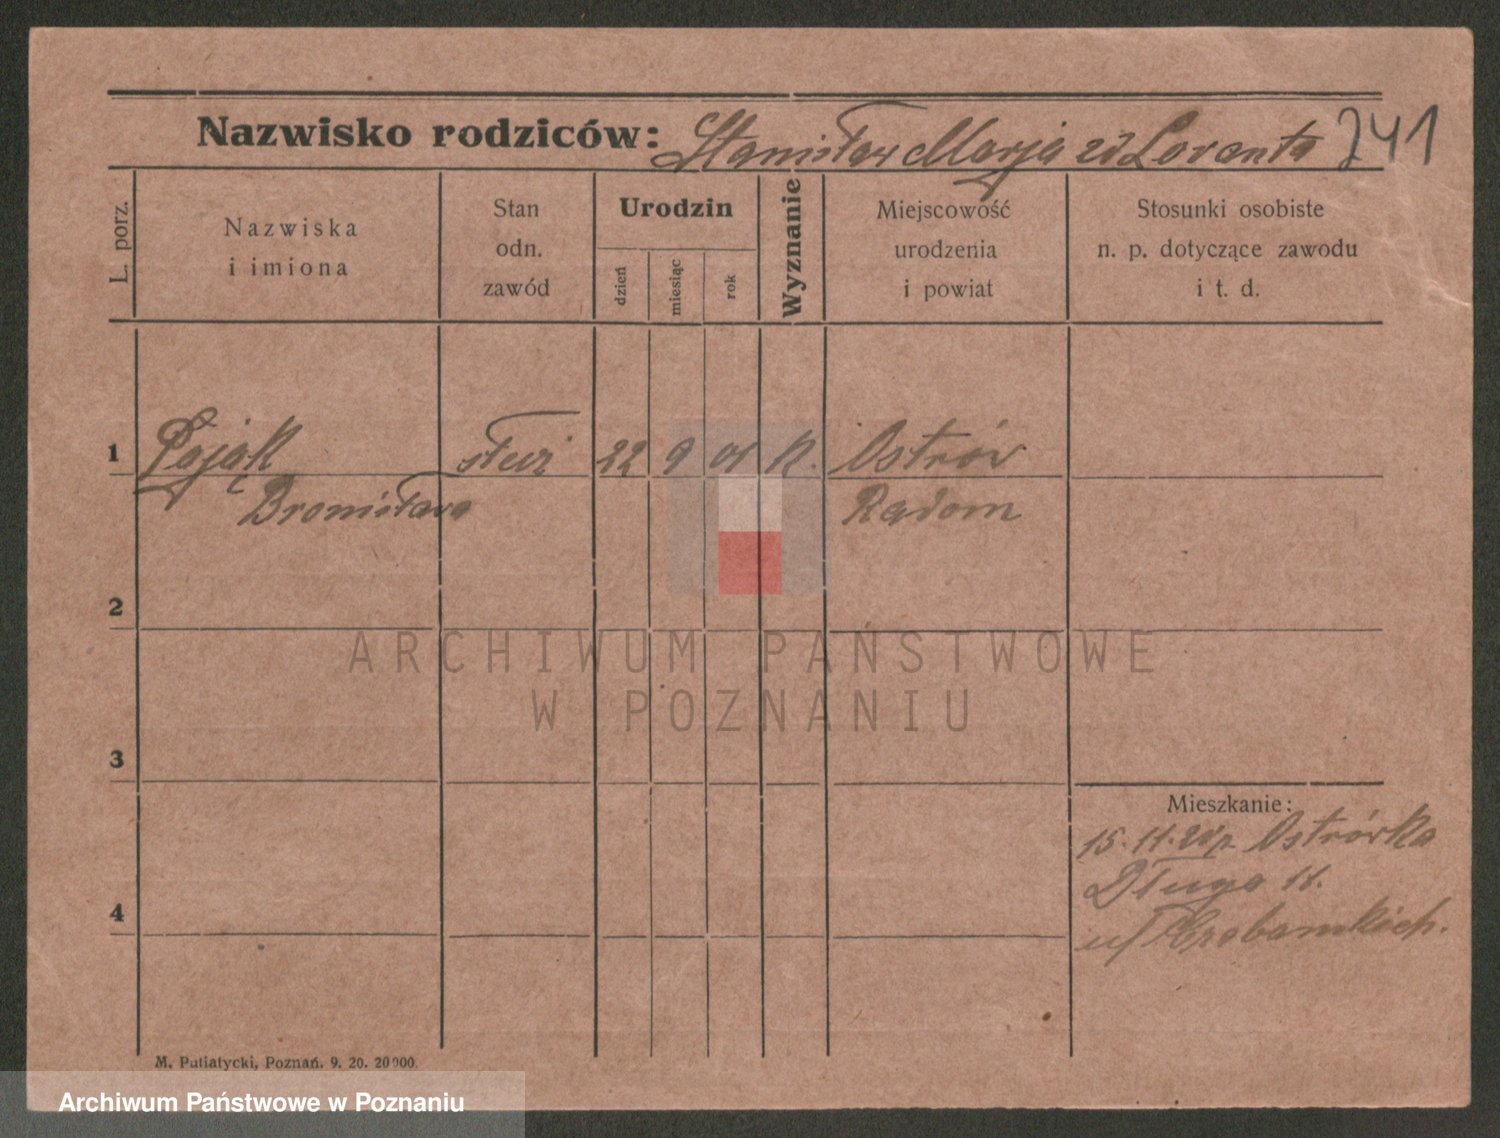 Nazwisko rodziców: Stanisław Marja zd Lorenta 241
L. porz.
Nazwiska
i imiona
Stan
odn.
zawód
Urodzin
dzień
miesiąc
rok
Wyznanie
Miejscowość
urodzenia
i powiat
Stosunki osobiste
n. p. dotyczące zawodu
i t. d.
1 Pająk służ 22 9 01 k. Ostrów
Bronisława Radom
2
ARCHIWUM PAŃSTWOWE
W POZNANIU
3
Mieszkanie:
15.11.20 Ostrówka
Długa 11.
4
M. Putiatycki, Poznań. 9. 20. 20000.
Archiwum Państwowe w Poznaniu